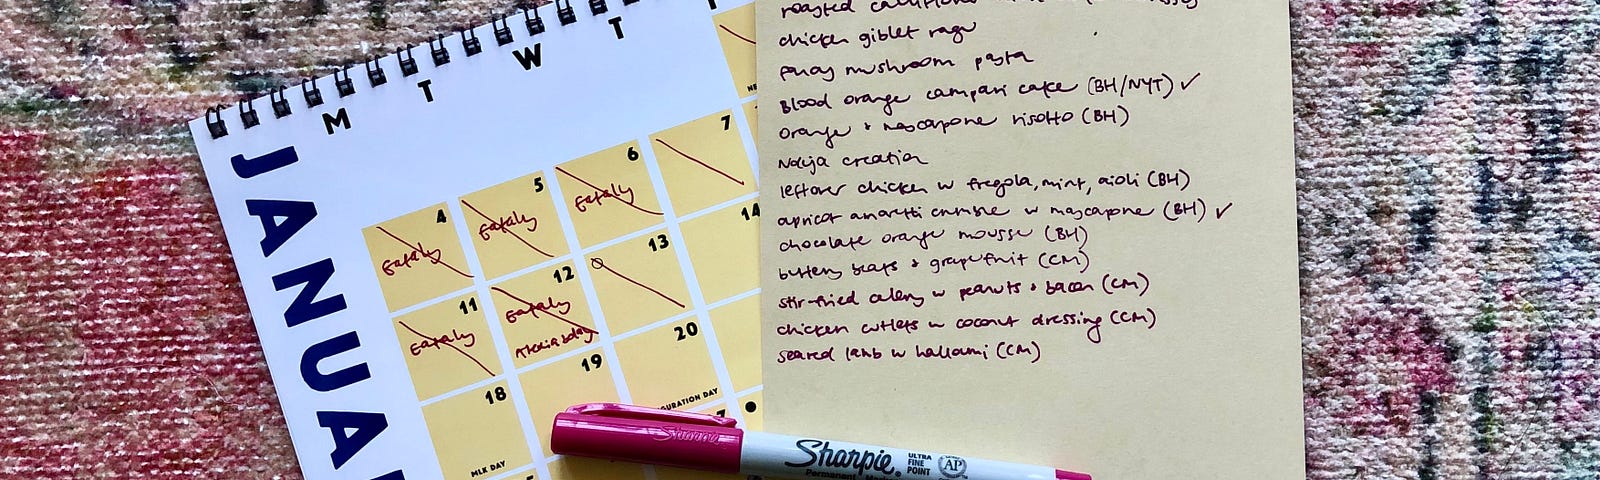 JANUA
M
T
W
T
4
Eataly
5
Eataly
6
Eataly
7
11
Eataly
12
Eataly
13
14
18
MLK DAY
19
20
GURATION DAY
roasted
chicken giblet ragu
fancy mushroom pasta
Blood orange campari cake (BH/NYT) ✓
orange + mascapone risotto (BH)
Nduja creation
leftover chicken w fregola, mint, aioli (BH)
apricot amaretti crumble w mascapone (BH) ✓
chocolate orange mousse (BH)
buttery beets + grapefruit (CM)
stir-fried celery w peanuts + bacon (CM)
chicken cutlets w coconut dressing (CM)
seared lamb w halloumi (CM)
Sharpie
Sharpie.
ULTRA
FINE
POINT
AP
Permanent